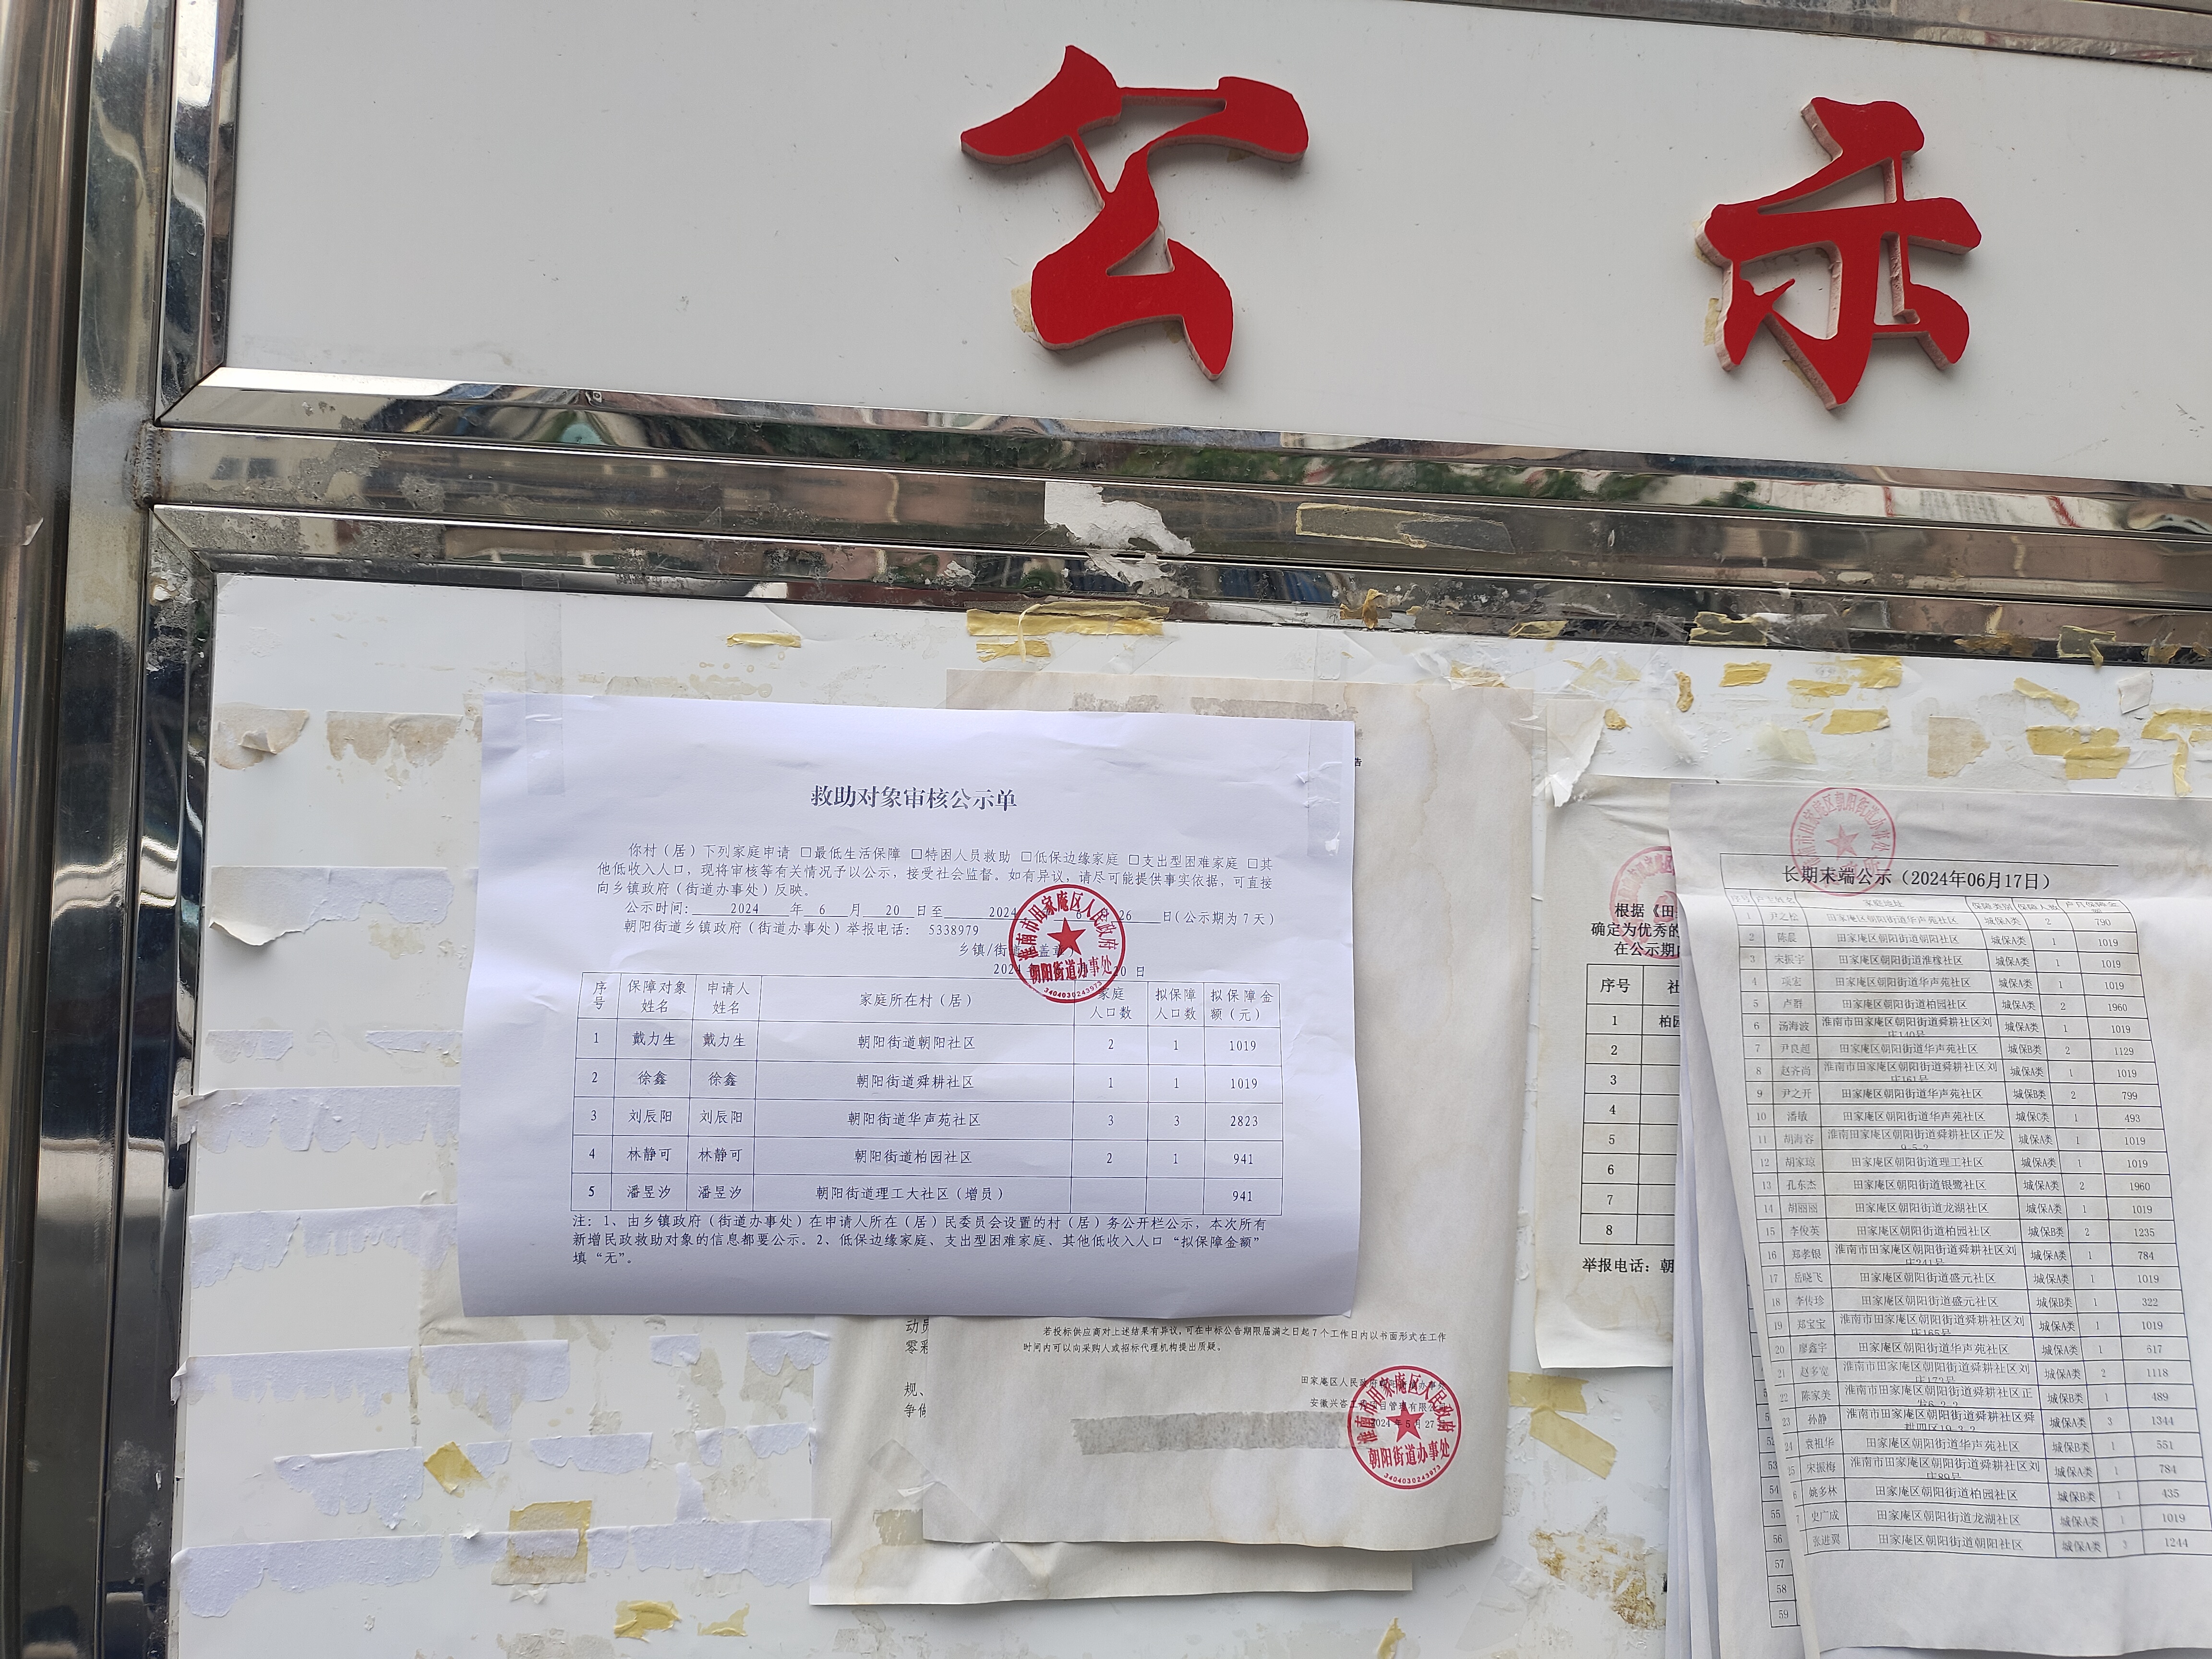 公示
救助对象审核公示单
你村（居）下列家庭申请 □最低生活保障 □特困人员救助 □低保边缘家庭 □支出型困难家庭 □其
他低收入人口，现将审核等有关情况予以公示，接受社会监督。如有异议，请尽可能提供事实依据，可直接
向乡镇政府（街道办事处）反映。
公示时间： 2024 年 6 月 20 日至 2024 26 日（公示期为7天）
朝阳街道乡镇政府（街道办事处）举报电话： 5338979
乡镇/街 盖章
2024 20 日
淮南市田家庵区人民政府
朝阳街道办事处
3404030243973
序号 保障对象姓名 申请人姓名 家庭所在村（居） 家庭人口数 拟保障人口数 拟保障金额（元）
1 戴力生 戴力生 朝阳街道朝阳社区 2 1 1019
2 徐鑫 徐鑫 朝阳街道舜耕社区 1 1 1019
3 刘辰阳 刘辰阳 朝阳街道华声苑社区 3 3 2823
4 林静可 林静可 朝阳街道柏园社区 2 1 941
5 潘昱汐 潘昱汐 朝阳街道理工大社区（增员） 941
注：1、由乡镇政府（街道办事处）在申请人所在（居）民委员会设置的村（居）务公开栏公示，本次所有
新增民政救助对象的信息都要公示。2、低保边缘家庭、支出型困难家庭、其他低收入人口“拟保障金额”
填“无”。
告
动员
零彩
规、
争做
若投标供应商对上述结果有异议，可在中标公告期限届满之日起7个工作日内以书面形式在工作
时间内可以向采购人或招标代理机构提出质疑。
田家庵区人民政府朝阳街道办事处
安徽兴咨工 项目管理有限公司
2024年5月27日
淮南市田家庵区人民政府
朝阳街道办事处
3404030243973
根据《田
确定为优秀的
在公示期内
序号 社
1 柏园
2
3
4
5
6
7
8
举报电话：朝
长期末端公示（2024年06月17日）
序号 户主姓名 家庭地址 保障类别 保障人数 户月保障金额
1 尹之松 田家庵区朝阳街道华声苑社区 城保A类 2 790
2 陈晨 田家庵区朝阳街道朝阳社区 城保A类 1 1019
3 宋振宇 田家庵区朝阳街道淮橡社区 城保A类 1 1019
4 项宏 田家庵区朝阳街道华声苑社区 城保A类 1 1019
5 卢群 田家庵区朝阳街道柏园社区 城保A类 2 1960
6 汤海波 淮南市田家庵区朝阳街道舜耕社区刘庄140号 城保A类 1 1019
7 尹良超 田家庵区朝阳街道华声苑社区 城保B类 2 1129
8 赵齐尚 淮南市田家庵区朝阳街道舜耕社区刘庄161号 城保A类 1 1019
9 尹之开 田家庵区朝阳街道华声苑社区 城保B类 2 799
10 潘敏 田家庵区朝阳街道华声苑社区 城保C类 1 493
11 胡海容 淮南田家庵区朝阳街道舜耕社区正发9-5-2 城保A类 1 1019
12 胡家琼 田家庵区朝阳街道理工社区 城保A类 1 1019
13 孔东杰 田家庵区朝阳街道银鹭社区 城保A类 2 1960
14 胡丽丽 田家庵区朝阳街道龙湖社区 城保A类 1 1019
15 李俊英 田家庵区朝阳街道柏园社区 城保B类 2 1235
16 郑孝银 淮南市田家庵区朝阳街道舜耕社区刘庄241号 城保A类 1 784
17 岳晓飞 田家庵区朝阳街道盛元社区 城保A类 1 1019
18 李传珍 田家庵区朝阳街道盛元社区 城保B类 1 322
19 郑宝宝 淮南市田家庵区朝阳街道舜耕社区刘庄165号 城保A类 1 1019
20 廖鑫宇 田家庵区朝阳街道华声苑社区 城保A类 1 617
21 赵多宽 淮南市田家庵区朝阳街道舜耕社区刘庄172号 城保A类 2 1118
22 陈家美 淮南市田家庵区朝阳街道舜耕社区正发6-2-2 城保B类 1 489
23 孙静 淮南市田家庵区朝阳街道舜耕社区舜耕四区19-3-2 城保A类 3 1344
24 袁祖华 田家庵区朝阳街道华声苑社区 城保B类 1 551
25 宋振梅 淮南市田家庵区朝阳街道舜耕社区刘庄89号 城保A类 1 784
6 姚多林 田家庵区朝阳街道柏园社区 城保B类 1 435
7 史广成 田家庵区朝阳街道龙湖社区 城保A类 1 1019
张进翼 田家庵区朝阳街道朝阳社区 城保A类 2 1244
53
54
55
56
57
58
59